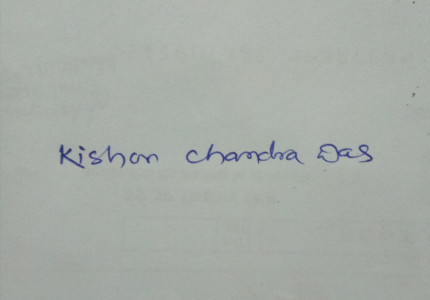 Kishon Chandra Das